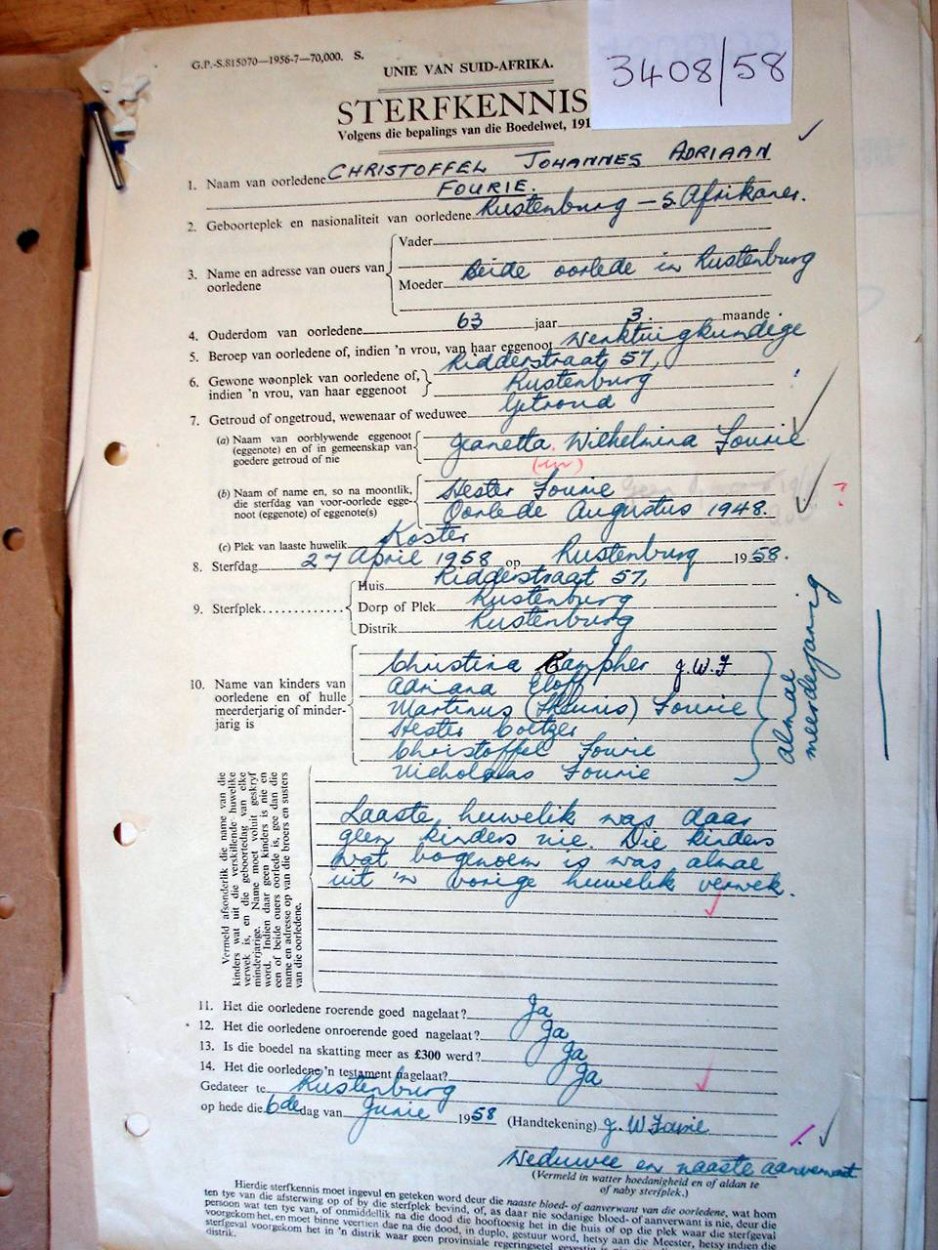 G.P.-S.815070—1956-7—70,000. S.
3408/58
UNIE VAN SUID-AFRIKA.
STERFKENNIS
Volgens die bepalings van die Boedelwet, 191
1. Naam van oorledene CHRISTOFFEL JOHANNES ADRIAAN
FOURIE.
2. Geboorteplek en nasionaliteit van oorledene Rustenburg — S. Afrikaner.
3. Name en adresse van ouers van oorledene
Vader
Moeder
Beide oorlede in Rustenburg
4. Ouderdom van oorledene 63 jaar 3. maande.
5. Beroep van oorledene of, indien 'n vrou, van haar eggenoot Werktuigkundige
6. Gewone woonplek van oorledene of, indien 'n vrou, van haar eggenoot
Ridderstraat 57,
Rustenburg
7. Getroud of ongetroud, wewenaar of weduwee Getroud
(a) Naam van oorblywende eggenoot (eggenote) en of in gemeenskap van goedere getroud of nie
Jeanetta Wilhelmina Fourie
(b) Naam of name en, so na moontlik, die sterfdag van voor-oorlede eggenoot (eggenote) of eggenote(s)
Hester Fourie
Oorlede Augustus 1948.
(c) Plek van laaste huwelik Koster
8. Sterfdag 27 April 1958 op Rustenburg 1958.
9. Sterfplek
Huis Ridderstraat 57,
Dorp of Plek Rustenburg
Distrik Rustenburg
10. Name van kinders van oorledene en of hulle meerderjarig of minderjarig is
Christina Campher J.W.F
Adriana Eloff
Martinus (Theunis) Fourie
Hester Coetzer
Christoffel Fourie
Nicholaas Fourie
almae meerderjarig
Vermeld afsonderlik die name van die
kinders wat uit die verskillende huwelike
verwek is, en die geboortedag van elke
minderjarige. Name moet voluit geskryf
word. Indien daar geen kinders is nie en
een of beide ouers oorlede is, gee dan die
name en adresse op van die broers en susters
van die oorledene.
Laaste huwelik was daar
geen kinders nie. Die kinders
wat bogenoem is was almae
uit 'n vorige huwelik verwek.
11. Het die oorledene roerende goed nagelaat? Ja
12. Het die oorledene onroerende goed nagelaat? Ja
13. Is die boedel na skatting meer as £300 werd? Ja
14. Het die oorledene 'n testament nagelaat? Ja
Gedateer te Rustenburg
op hede die 6de dag van Junie 1958 (Handtekening) J. W Fourie
Weduwee en naaste aanverwant
(Vermeld in watter hoedanigheid en of aldan te
of naby sterfplek.)
Hierdie sterfkennis moet ingevul en geteken word deur die naaste bloed- of aanverwant van die oorledene, wat hom
ten tye van die afsterwing op of by die sterfplek bevind, of, as daar nie sodanige bloed- of aanverwant is nie, deur die
persoon wat ten tye van, of onmiddellik na die dood die hooftoesig het in die huis of op die plek waar die sterfgeval
voorgekom het, en moet binne veertien dae na die dood, in duplo, gestuur word, hetsy aan die Meester, hetsy indien die
sterfgeval voorgekom het in 'n distrik waar geen provinsiale regeringsetel gevestig is
distrik.